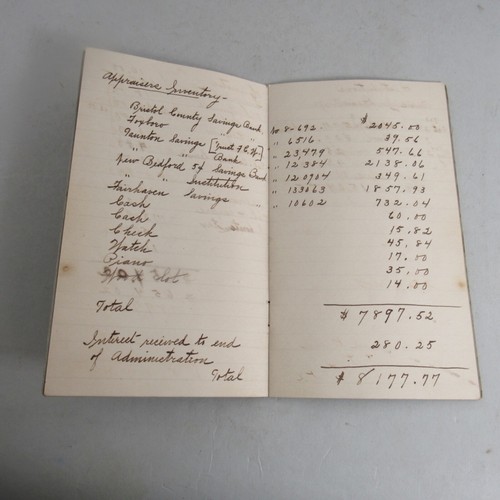 Appraisers Inventory-
Bristol County Savings Bank No 8-692. $ 2045.00
Foxboro " " " 6516. 39.56
Taunton Savings " 23,479 547.66
" Bank " 12384 2138.06
New Bedford 5¢ Savings Bank " 120704 349.61
" " Institution " 133063 1857.93
Fairhaven Savings " 10602 732.04
Cash 60.00
Cash 15.82
Check 45.84
Watch 17.00
Piano 35.00
14.00
Total $7897.52
Interest recieved to end
of Administration 280.25
Total $8177.77